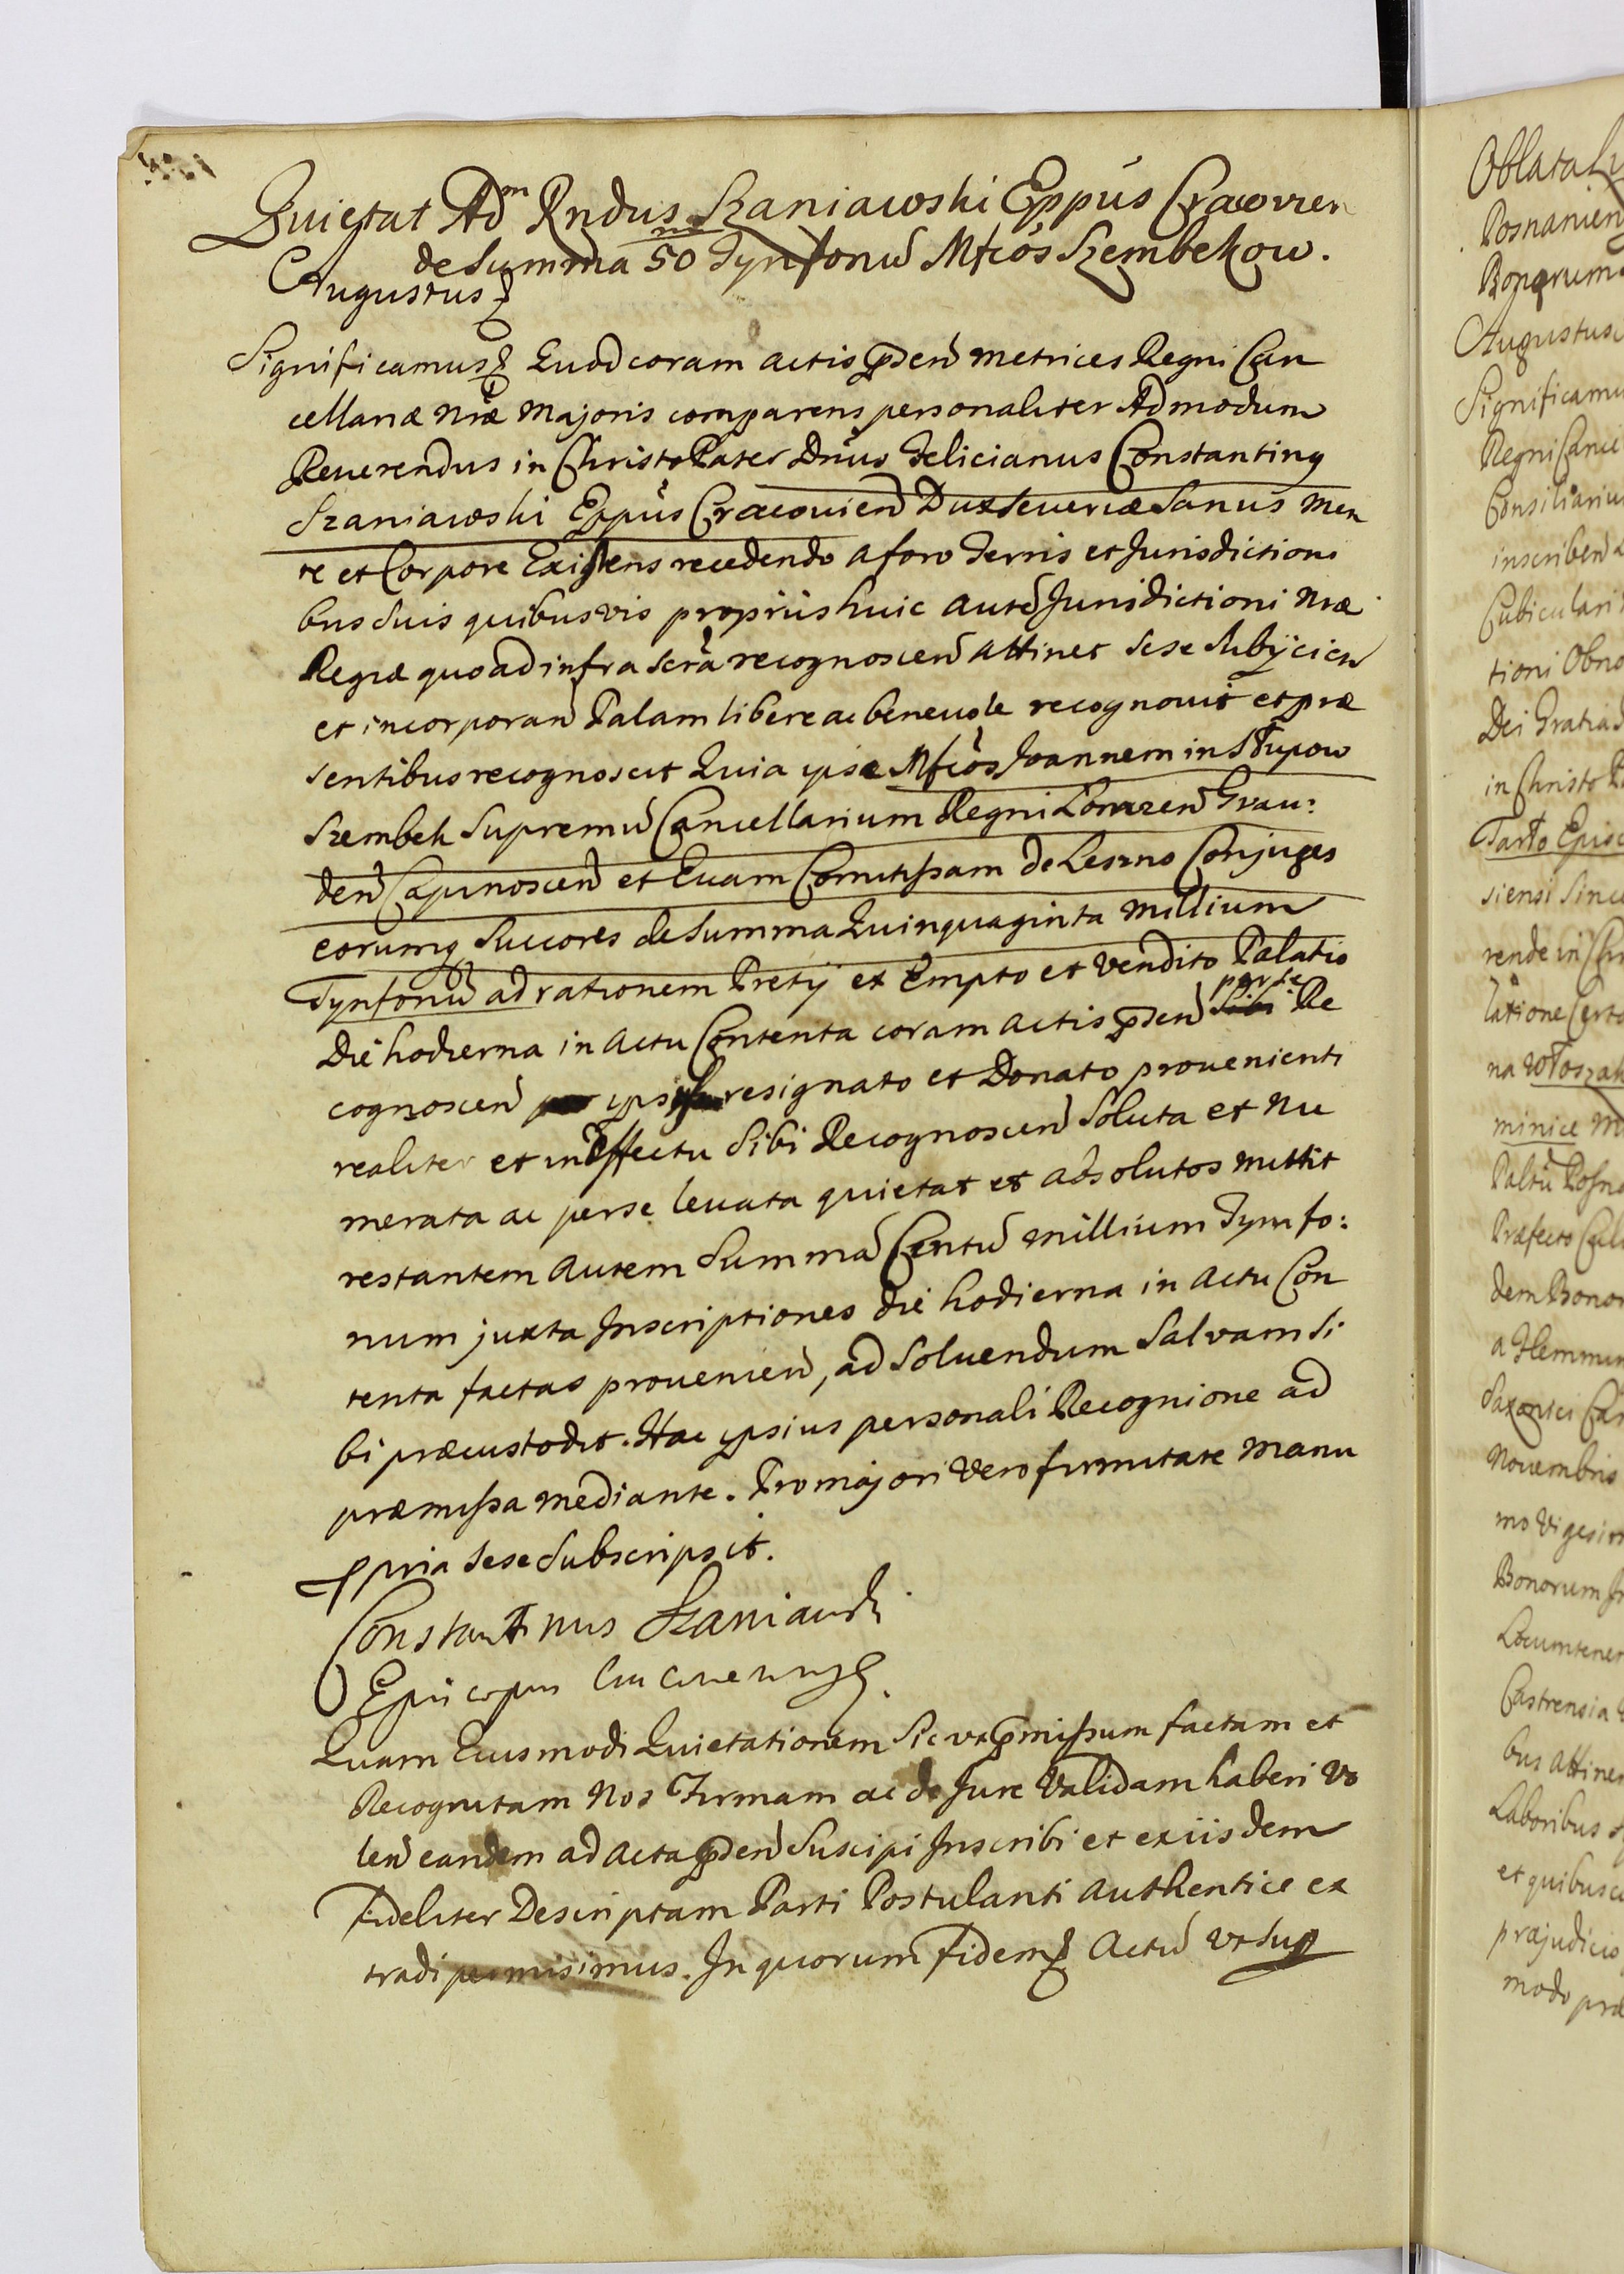 Quietat Adm Rndus Szaniawski Eppus Cracovien
de Summa 50 m Tynfonu Mfcos Szembekow.
Augustus
Significamus Quod coram actis pnden metrices Regni Can
cellariæ Nræ Majoris comparens personaliter Admodum
Reuerendus in Christo Pater Dnus Felicianus Constantinq
Szaniawski Eppus Cracouien Dux Seueriæ Sanus men
te et Corpore Existens recedendo a foro Terris et Jurisdictioni
bus Suis quibusvis proprijs huic autem Jurisdictioni Nræ
Regiæ quoad infra Scra recognoscen attinet Sese Subijcien
et incorporan Palam libere ac beneuole recognouit et præ
sentibus recognoscit Quia ipse Mfcos Joannem in Słupow
Szembek Supremu Cancellarium Regni Lomzen Grau:
den Capinoscen et Euam Comitissam de Leszno Conjuges
eorumq Succores de Summa Quinquaginta Millium
Tynfonu ad rationem Pretij ex Empto et Vendito Palatio
Die hodierna in Actu Contenta coram Actis pnden per se Re
cognoscen ipsis resignato et Donato prouenienti
realiter et in Effectu Sibi Recognoscen Soluta et Nu
merata ac per se leuata quietat et absolutos mittit
restantem autem Summa Centu millium Tymfo:
num juxta Inscriptiones die hodierna in Actu Con
tenta factas prouenien, ad Soluendum Salvam Si
bi præcustodit. Hac ipsius personali Recognione ad
præmissa mediante. Pro majori Vero firmitate manu
ppria Sese Subscripsit.
Constantinus Szaniawski
Episcopus
Quam Eiusmodi Quietationem Sic ut pmissum factam et
Recognitam Nos Firmam ac de Jure Validam haberi Vo
len eandem ad Acta pnden Suscipi Inscribi et ex iisdem
Fideliter Descriptam Parti Postulanti Authentice ex
tradi permisimus. In quorum Fidem Actu Ut Sup
Oblata
Posnanien
Bonorum
Augustus
Significamu
Regni Canc
Consiliariu
inscriben
Cubiculari
tioni Obno
Dei Gratia
in Christo P
Tarło Episc
siensi Since
rende in Chr
latione Certo
na
minice M
Præfecto
dem Bonor
a Flemmin
Saxonici
Novembris
mo Vigesim
Bonorum
Locumtenen
Castrensia
bus attinen
Laboribus
et quibusc
præjudicio
modo præ